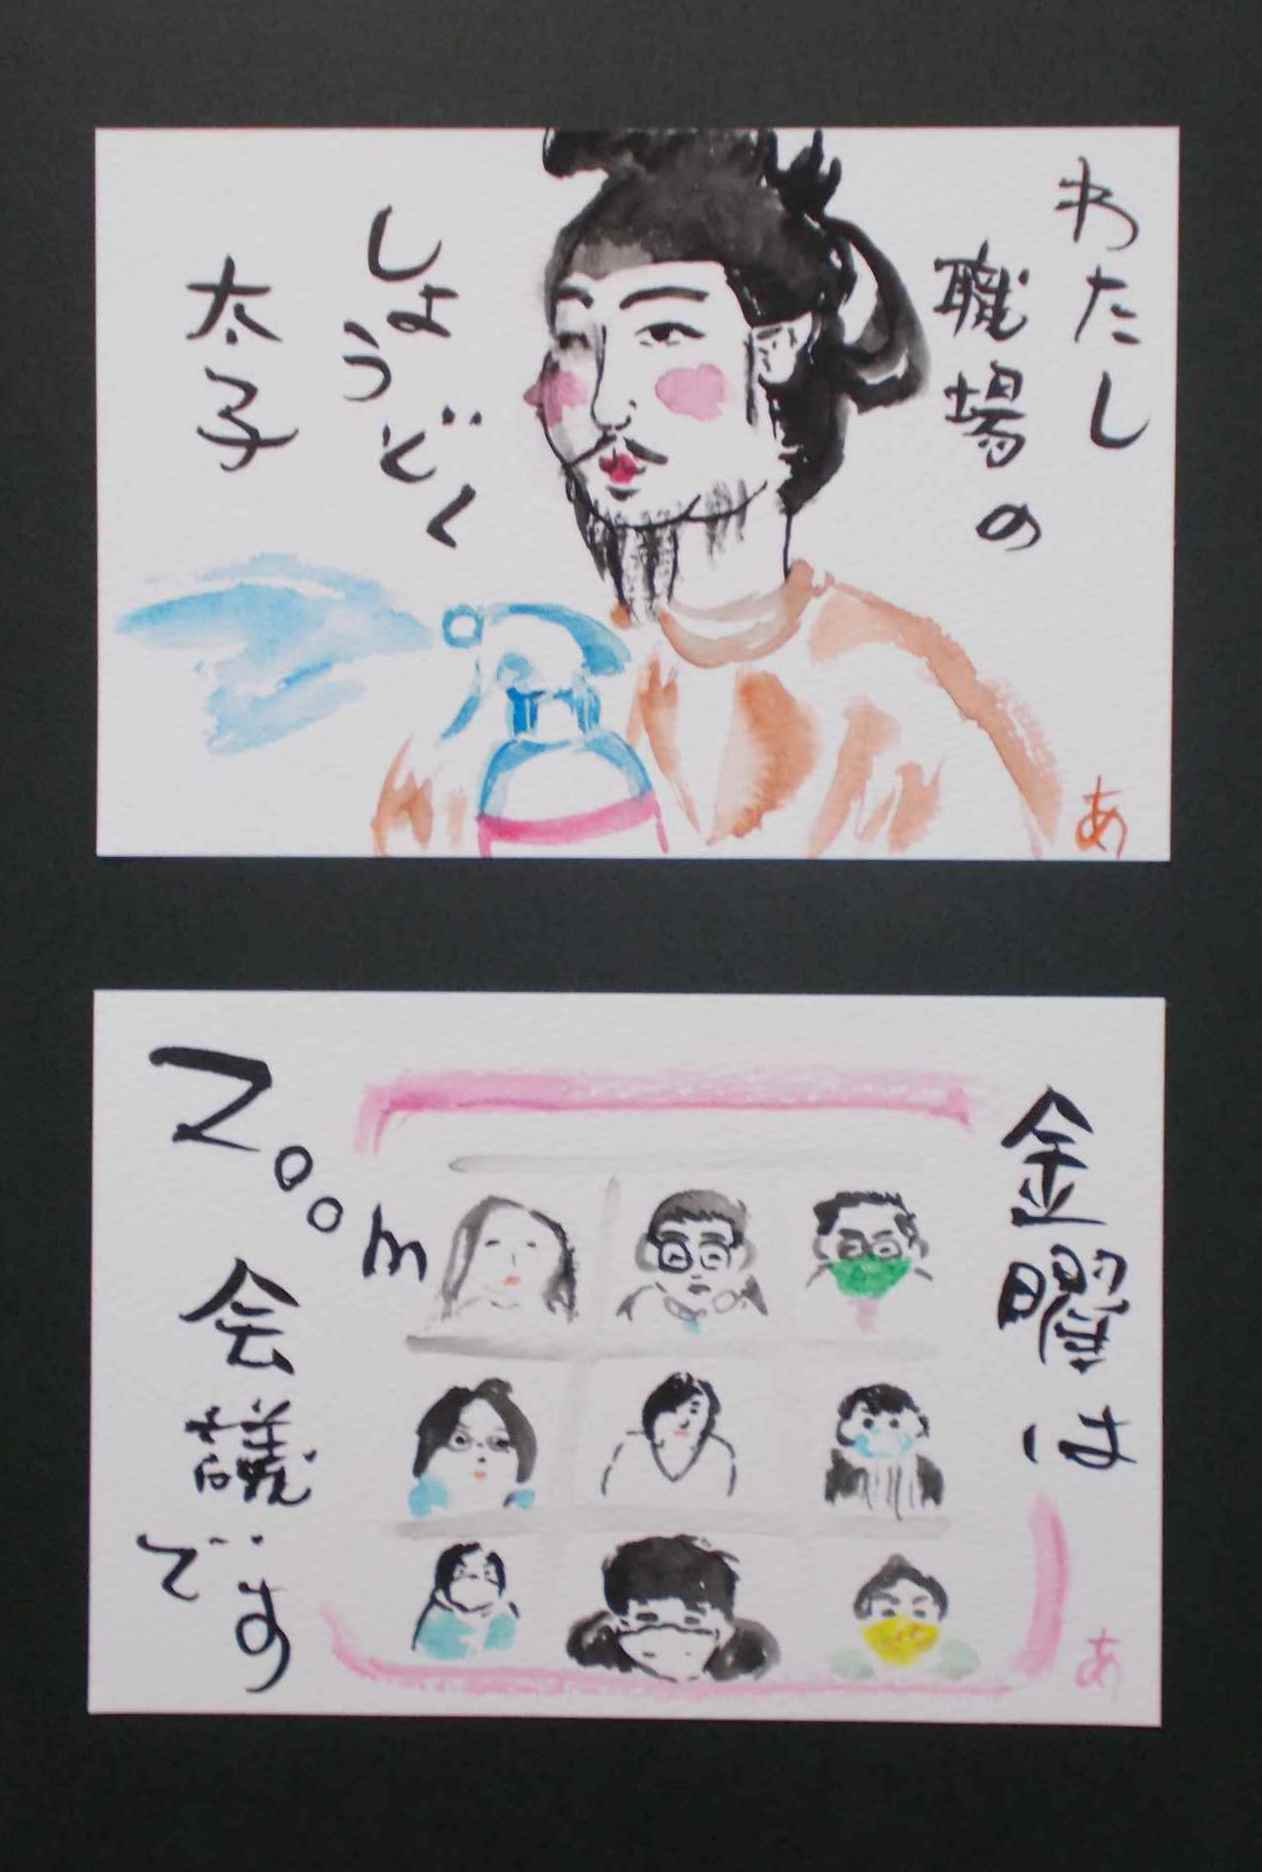 わたし
職場の
しょうどく
太子
あ
金曜は
Zoom
会議
です
あ